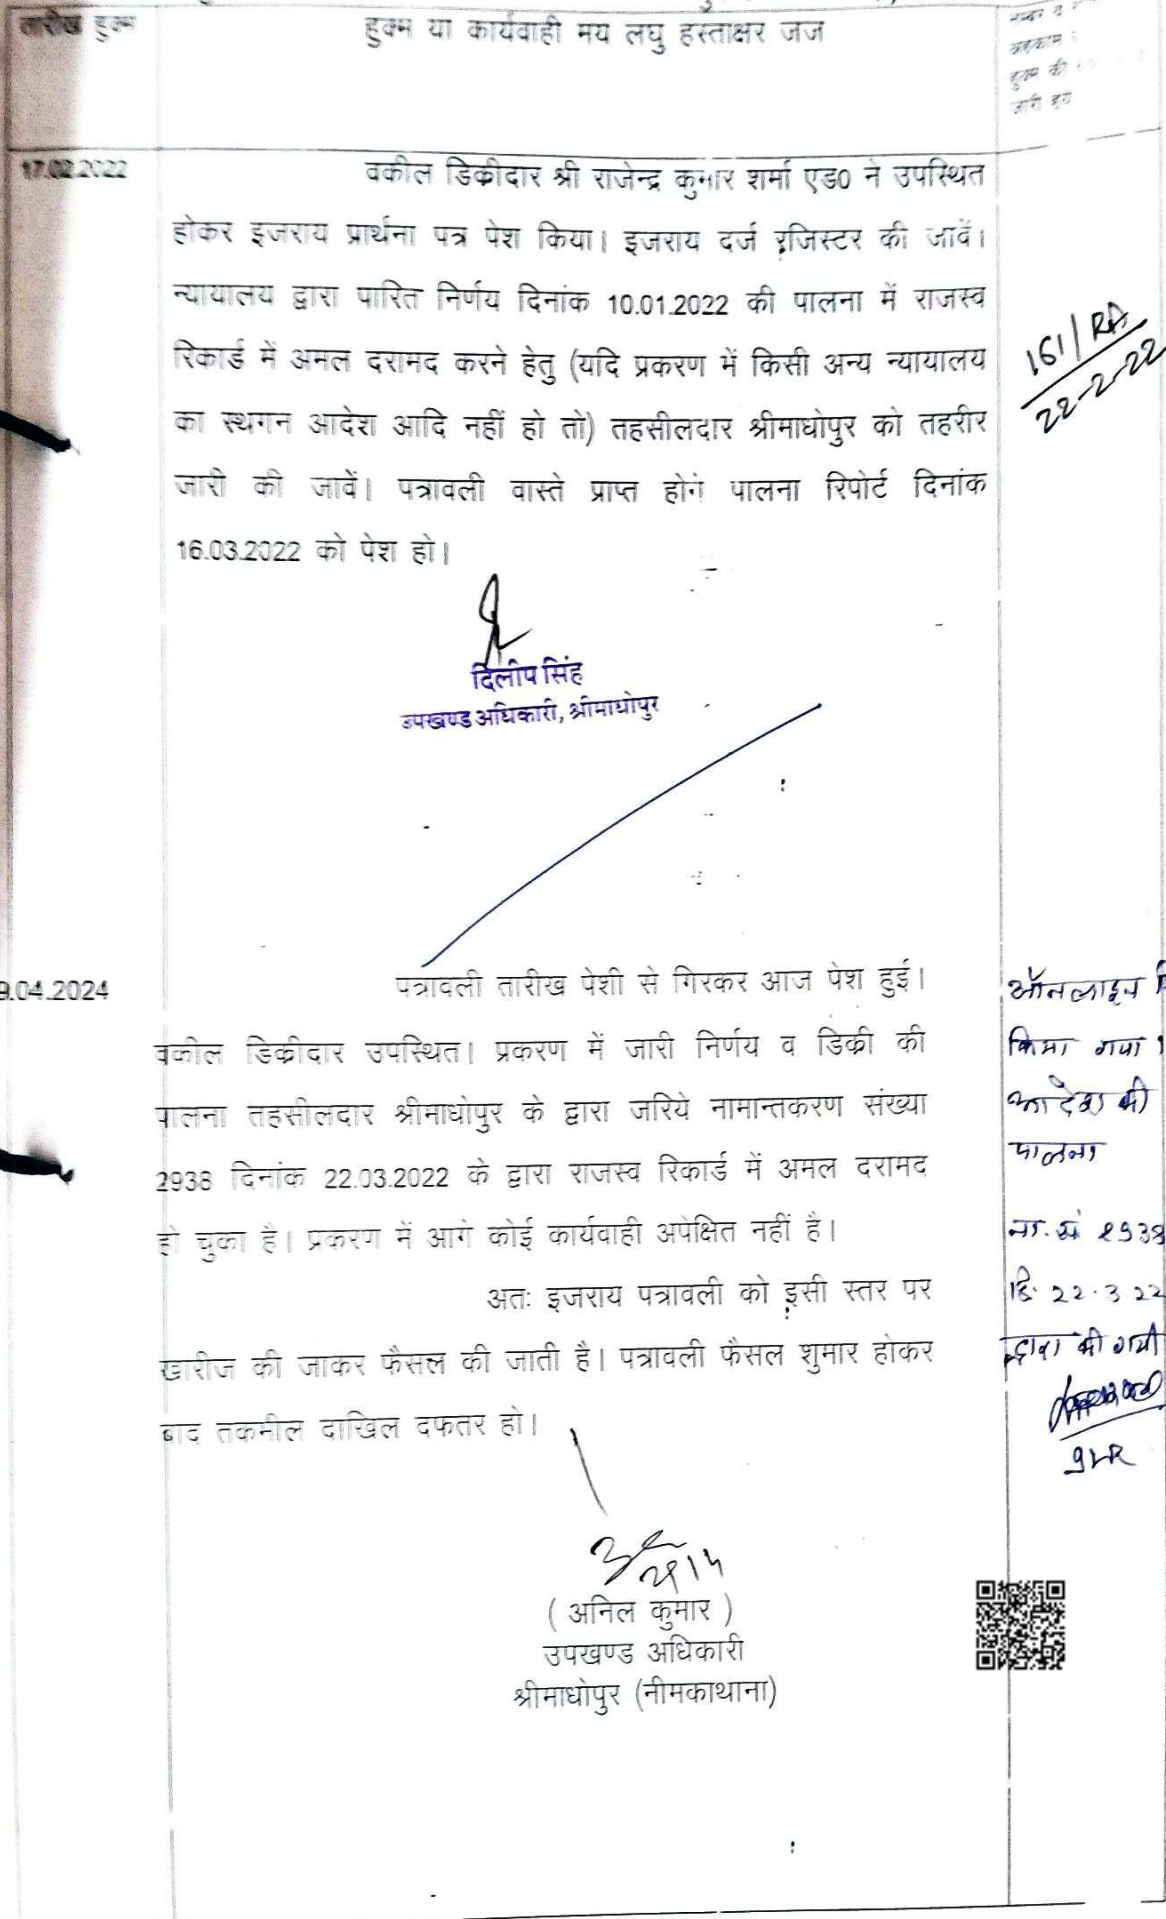 तारीख हुक्म
हुक्म या कार्यवाही मय लघु हस्ताक्षर जज
नम्बर व
अहकाम
हुक्म की
जारी हुए
17.02.2022
वकील डिक्रीदार श्री राजेन्द्र कुमार शर्मा एड0 ने उपस्थित
होकर इजराय प्रार्थना पत्र पेश किया। इजराय दर्ज रजिस्टर की जावें।
न्यायालय द्वारा पारित निर्णय दिनांक 10.01.2022 की पालना में राजस्व
रिकार्ड में अमल दरामद करने हेतु (यदि प्रकरण में किसी अन्य न्यायालय
का स्थगन आदेश आदि नहीं हो तो) तहसीलदार श्रीमाधोपुर को तहरीर
जारी की जावें। पत्रावली वास्ते प्राप्त होने पालना रिपोर्ट दिनांक
16.03.2022 को पेश हो।
161/RA
22-2-22
दिलीप सिंह
उपखण्ड अधिकारी, श्रीमाधोपुर
9.04.2024
पत्रावली तारीख पेशी से गिरकर आज पेश हुई।
वकील डिक्रीदार उपस्थित। प्रकरण में जारी निर्णय व डिक्री की
पालना तहसीलदार श्रीमाधोपुर के द्वारा जरिये नामान्तकरण संख्या
2938 दिनांक 22.03.2022 के द्वारा राजस्व रिकार्ड में अमल दरामद
हो चुका है। प्रकरण में आगे कोई कार्यवाही अपेक्षित नहीं है।
अतः इजराय पत्रावली को इसी स्तर पर
खारीज की जाकर फैसल की जाती है। पत्रावली फैसल शुमार होकर
बाद तकमील दाखिल दफतर हो।
ऑनलाइन
किया गया
आदेश की
पालना
ना. सं 2938
दि. 22.3.22
द्वारा की गयी
( अनिल कुमार )
उपखण्ड अधिकारी
श्रीमाधोपुर (नीमकाथाना)